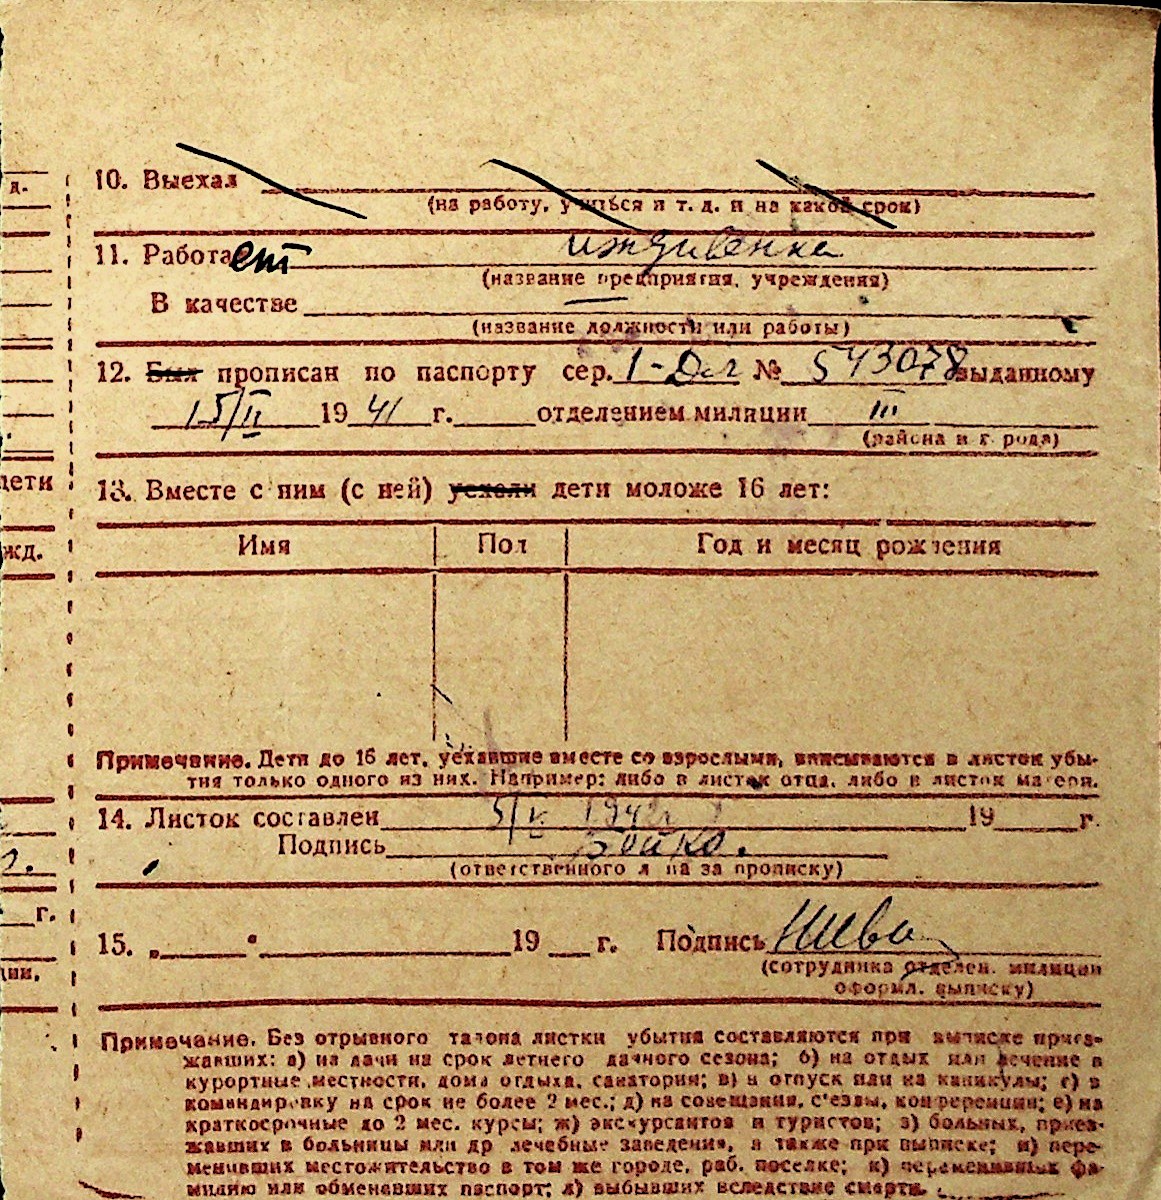 д.
10. Выехал
(на работу, учиться и т. д. и на какой срок)
11. Работает иждивенка
(название предприятия, учреждения)
В качестве —
(название должности или работы)
12. Был прописан по паспорту сер. № 543078 выданному
15/II 1941 г. отделением милиции III
(района и города)
дети
13. Вместе с ним (с ней) уехали дети моложе 16 лет:
жд.
Имя Пол Год и месяц рождения
Примечание. Дети до 16 лет, уехавшие вместе со взрослыми, вписываются в листок убы-
тия только одного из них. Например: либо в листок отца, либо в листок матери.
14. Листок составлен 19 г.
Подпись Бойко.
(ответственного лица за прописку)
г.
15. „ " 19 г. Подпись
(сотрудника отделен. милиции
оформл. выписку)
Примечание. Без отрывного талона листки убытия составляются при выписке приез-
жавших: а) на дачи на срок летнего дачного сезона; б) на отдых или лечение в
курортные местности, дома отдыха, санатории; в) в отпуск или на каникулы; г) в
командировку на срок не более 2 мес.; д) на совещания, с'езды, конференции; е) на
краткосрочные до 2 мес. курсы; ж) экскурсантов и туристов; з) больных, приез-
жавших в больницы или др лечебные заведения, а также при выписке; и) пере-
менивших местожительство в том же городе, раб. поселке; к) переменивших фа-
милию или обменявших паспорт; л) выбывших вследствие смерти.